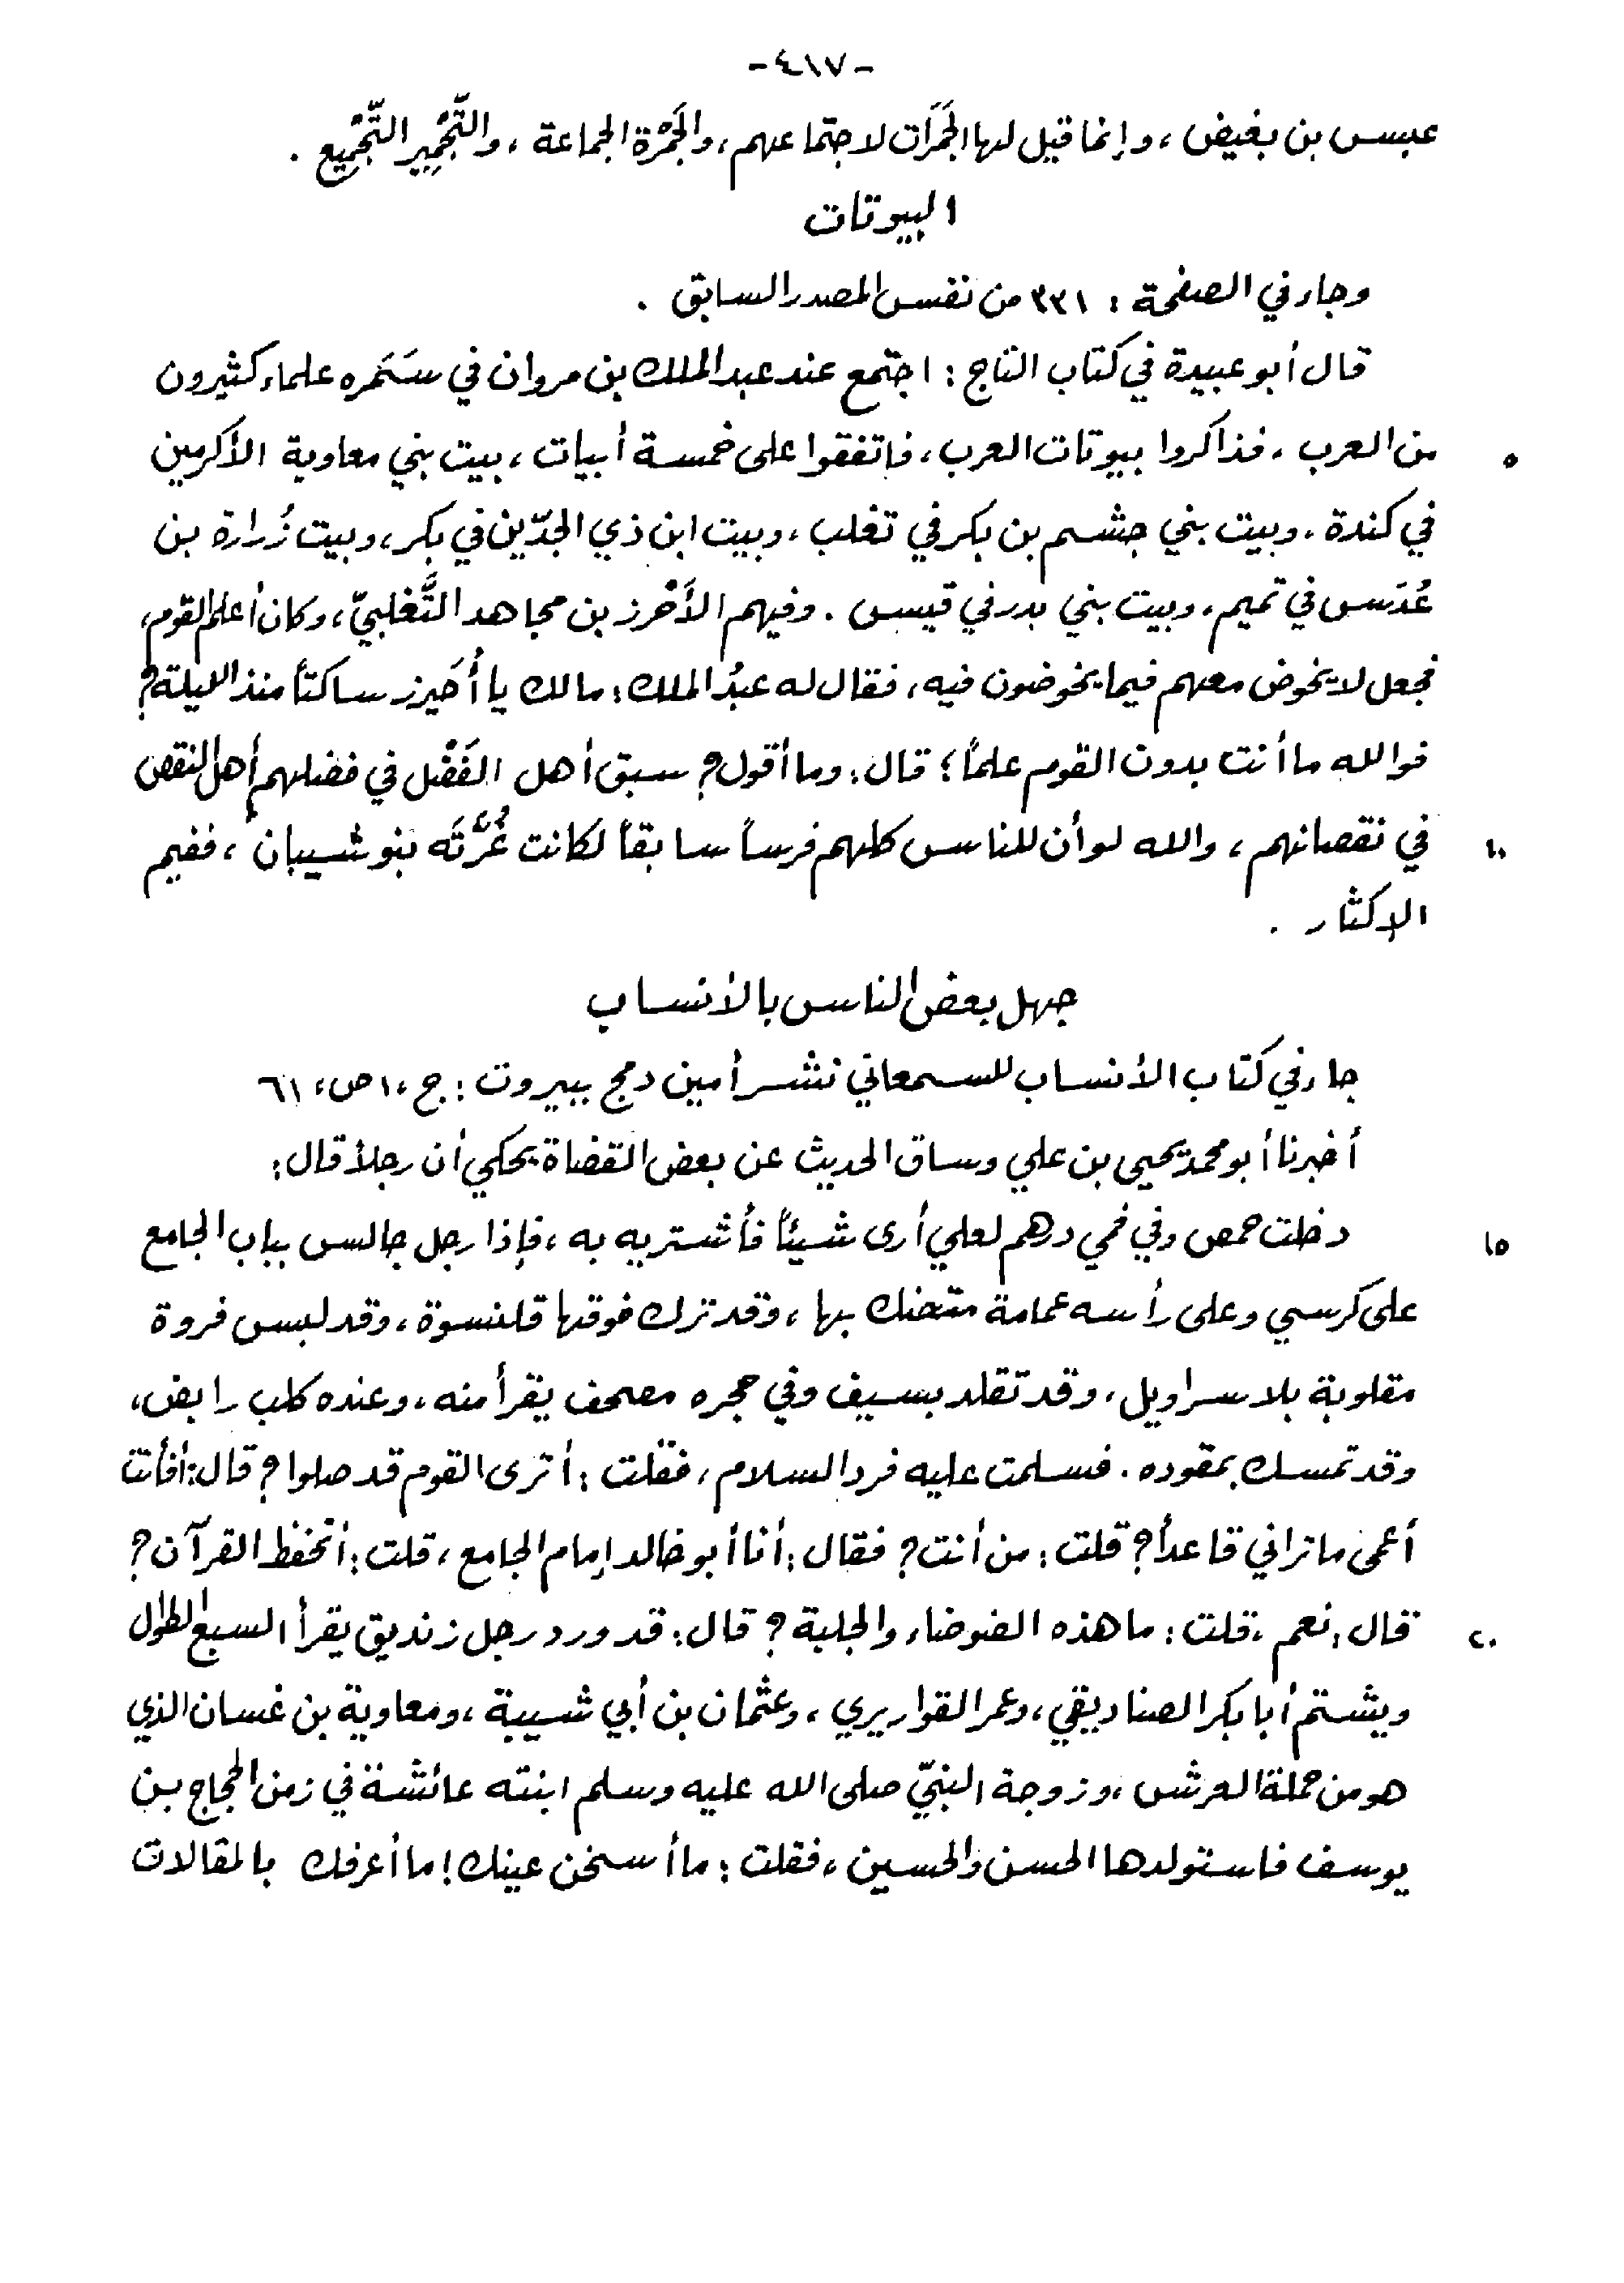 -٤١٧-
عبس بن بغيض ، وإنما قيل لها الجَمَرَات لاجتماعهم ، والجَمْرَة الجماعة ، والتَّجْمِير التَّجْمِيع .
البيوتات
وجاء في الصفحة : ٣٣١ من نفس المصدر السابق .
قال أبو عبيدة في كتاب التاج : اجتمع عند عبد الملك بن مروان في سَمَره علماء كثيرون
٥ من العرب ، فذاكروا بيوتات العرب ، فاتفقوا على خمسة أبيات ، بيت بني معاوية الأكرمين
في كندة ، وبيت بني جشم بن بكر في تغلب ، وبيت ابن ذي الجدّين في بكر ، وبيت زُرارة بن
عُدَس في تميم ، وبيت بني بدر في قيس . وفيهم الأَحْرز بن مجاهد التَّغلبيّ ، وكان أعلم القوم ،
فجعل لا يخوض معهم فيما يخوضون فيه ، فقال له عبدُ الملك : مالك يا أُحَيرز ساكتاً منذ الليلة ؟
فوالله ما أنت بدون القوم علماً ؛ قال : وما أقول ؟ سبق أهل الفَضْل في فضلهم أهل النقص
١٠ في نقصانهم ، والله لو أن للناس كلهم فرساً سابقاً لكانت غُرَّتَه بنو شيبان ، ففيم
الإكثار .
جهل بعض الناس بالأنساب
جاء في كتاب الأنساب للسمعاني نشر أمين دمج بيروت : ج ،١ ص ، ٦١
أخبرنا أبو محمد يحيى بن علي وساق الحديث عن بعض القضاة يحكي أن رجلاً قال :
١٥ دخلت حمص وفي فمي درهم لعلي أرى شيئاً فأشتريه به ، فإذا رجل جالس بباب الجامع
على كرسي وعلى رأسه عمامة متحنك بها ، وقد ترك فوقها قلنسوة ، وقد لبس فروة
مقلوبة بلا سراويل ، وقد تقلد بسيف وفي حجره مصحف يقرأ منه ، وعنده كلب رابض ،
وقد تمسك بمقوده . فسلمت عليه فرد السلام ، فقلت : أترى القوم قد صلوا ؟ قال : أفأنت
أعمى ما تراني قاعداً ؟ قلت : من أنت ؟ فقال : أنا أبو خالد إمام الجامع ، قلت : أتحفظ القرآن ؟
٢٠ قال : نعم ، قلت : ما هذه الضوضاء والجلبة ؟ قال : قد ورد رجل زنديق يقرأ السبع الطوال
ويشتم أبا بكر الصناديقي ، وعمر القواريري ، وعثمان بن أبي شيبة ، ومعاوية بن غسان الذي
هو من حملة العرش ، وزوجة النبيّ صلى الله عليه وسلم ابنته عائشة في زمن الحجاج بن
يوسف فاستولدها الحسن والحسين ، فقلت : ما أسخن عينك ! ما أعرفك بالمقالات